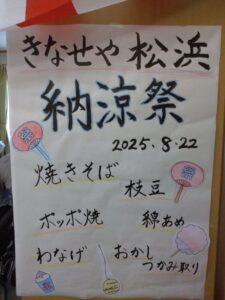 きなせや 松浜
納涼祭
2025.8.22
焼きそば
枝豆
ポッポ焼
綿あめ
わなげ
おかし
つかみ取り